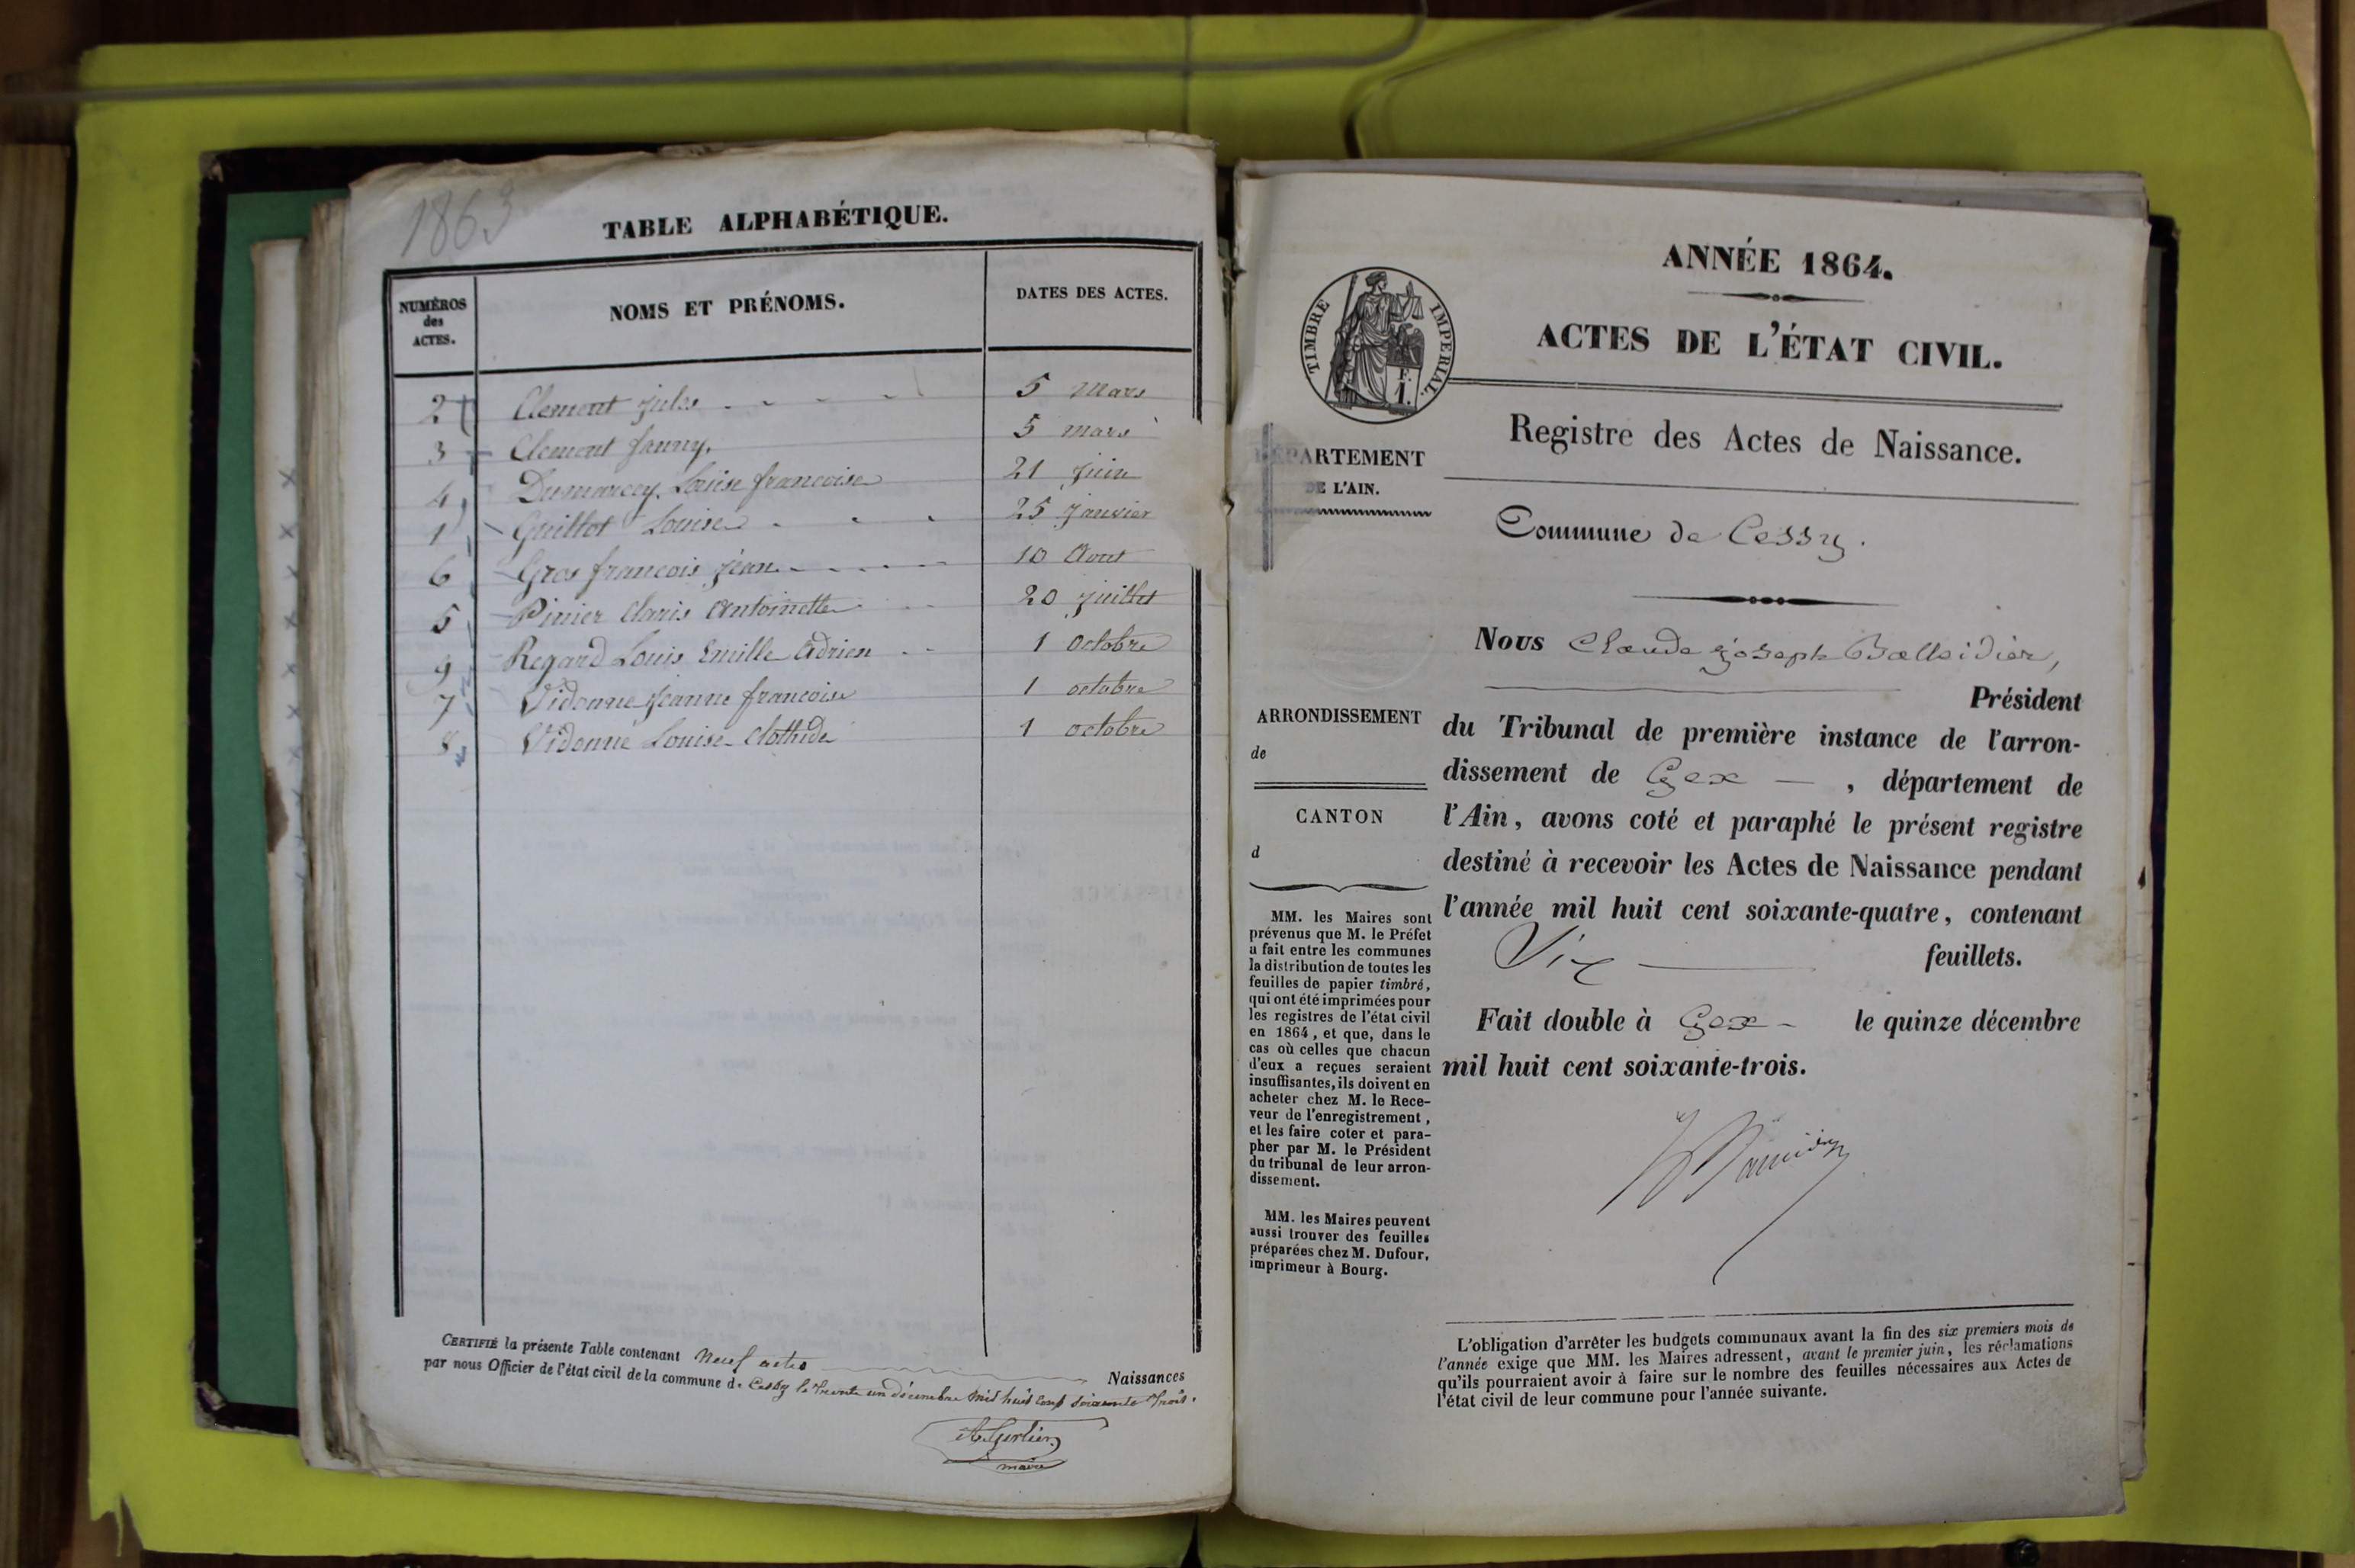 1863
TABLE ALPHABÉTIQUE.
NUMÉROS des ACTES. NOMS ET PRÉNOMS. DATES DES ACTES.
2 Clement Jules 5 Mars
3 Clement fanny. 5 mars
4 Dumarcey Louise francoise 21 Juin
1 Guillot Louise 25 Janvier
6 Gros francois jean 10 Aout
5 Pinier Claris Antoinette 20 Juillet
9 Regard Louis Emille Adrien 1 Octobre
7 Vidonne Jeanne francoise 1 octobre
8 Vidonne Louise Clothide 1 octobre
CERTIFIÉ la présente Table contenant Neuf actes Naissances
par nous Officier de l'état civil de la commune de Cessy le Trente un décembre mil huit cent soixante Trois.
maire
ANNÉE 1864.
ACTES DE L'ÉTAT CIVIL.
TIMBRE IMPERIAL.
F.
1.
Registre des Actes de Naissance.
DÉPARTEMENT
DE L'AIN.
Commune de Cessy.
Nous Claude Joseph
Président
du Tribunal de première instance de l'arron-
dissement de Gex — , département de
l'Ain, avons coté et paraphé le présent registre
destiné à recevoir les Actes de Naissance pendant
l'année mil huit cent soixante-quatre, contenant
Six feuillets.
Fait double à Gex — le quinze décembre
mil huit cent soixante-trois.
ARRONDISSEMENT
de
CANTON
d
MM. les Maires sont
prévenus que M. le Préfet
a fait entre les communes
la distribution de toutes les
feuilles de papier timbré,
qui ont été imprimées pour
les registres de l'état civil
en 1864, et que, dans le
cas où celles que chacun
d'eux a reçues seraient
insuffisantes, ils doivent en
acheter chez M. le Rece-
veur de l'enregistrement,
et les faire coter et para-
pher par M. le Président
du tribunal de leur arron-
dissement.
MM. les Maires peuvent
aussi trouver des feuilles
préparées chez M. Dufour,
imprimeur à Bourg.
L'obligation d'arrêter les budgets communaux avant la fin des six premiers mois de
l'année exige que MM. les Maires adressent, avant le premier juin, les réclamations
qu'ils pourraient avoir à faire sur le nombre des feuilles nécessaires aux Actes de
l'état civil de leur commune pour l'année suivante.